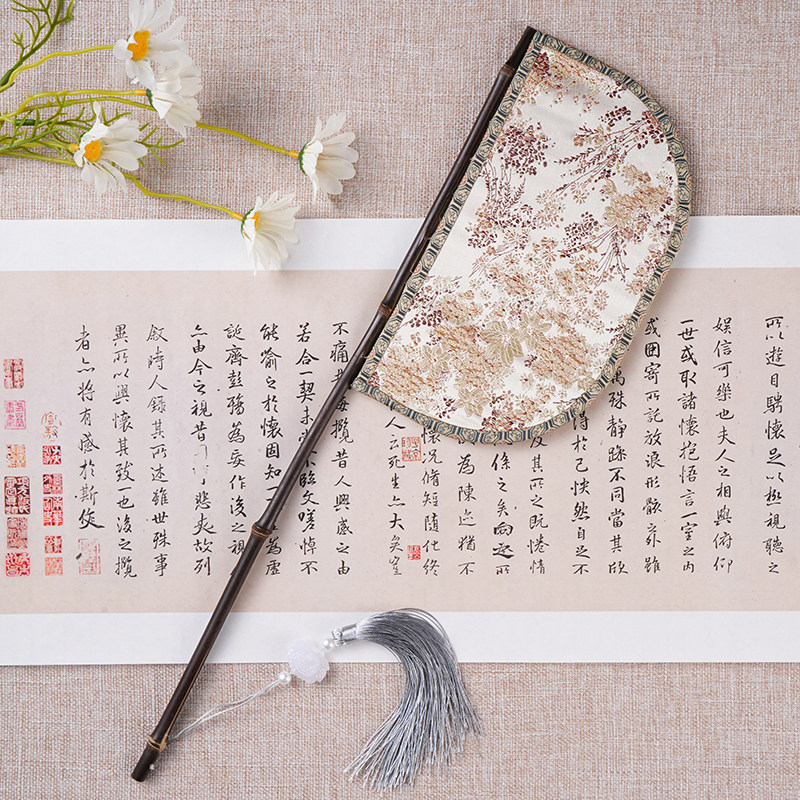 所以遊目騁懷足以極視聽之
娛信可樂也夫人之相與俯仰
一世或取諸懷抱悟言一室之內
或因寄所託放浪形骸之外雖
萬殊靜躁不同當其欣
得於己怏然自足不
及其所之既惓情
係之矣向之所
為陳迹猶不
懷況脩短隨化終
人云死生亦大矣豈
不痛每攬昔人興感之由
若合一契未嘗不臨文嗟悼不
能喻之於懷固知一為虛
誕齊彭殤為妄作後之視
亦由今之視昔悲夫故列
敘時人錄其所述雖世殊事
異所以興懷其致一也後之攬
者亦將有感於斯文